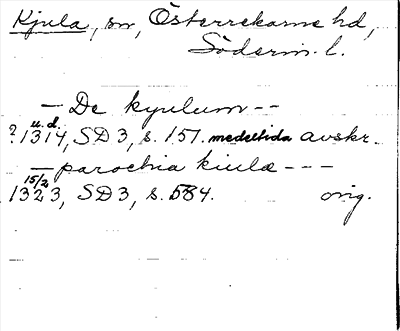 Kjula, sn, Österrekarne hd,
Söderm. l.
— De kyulum --
? u.d. 1314, SD 3, s. 151. medeltida avskr.
— parochia kiula ---
15/2 1323, SD 3, s. 584. orig.